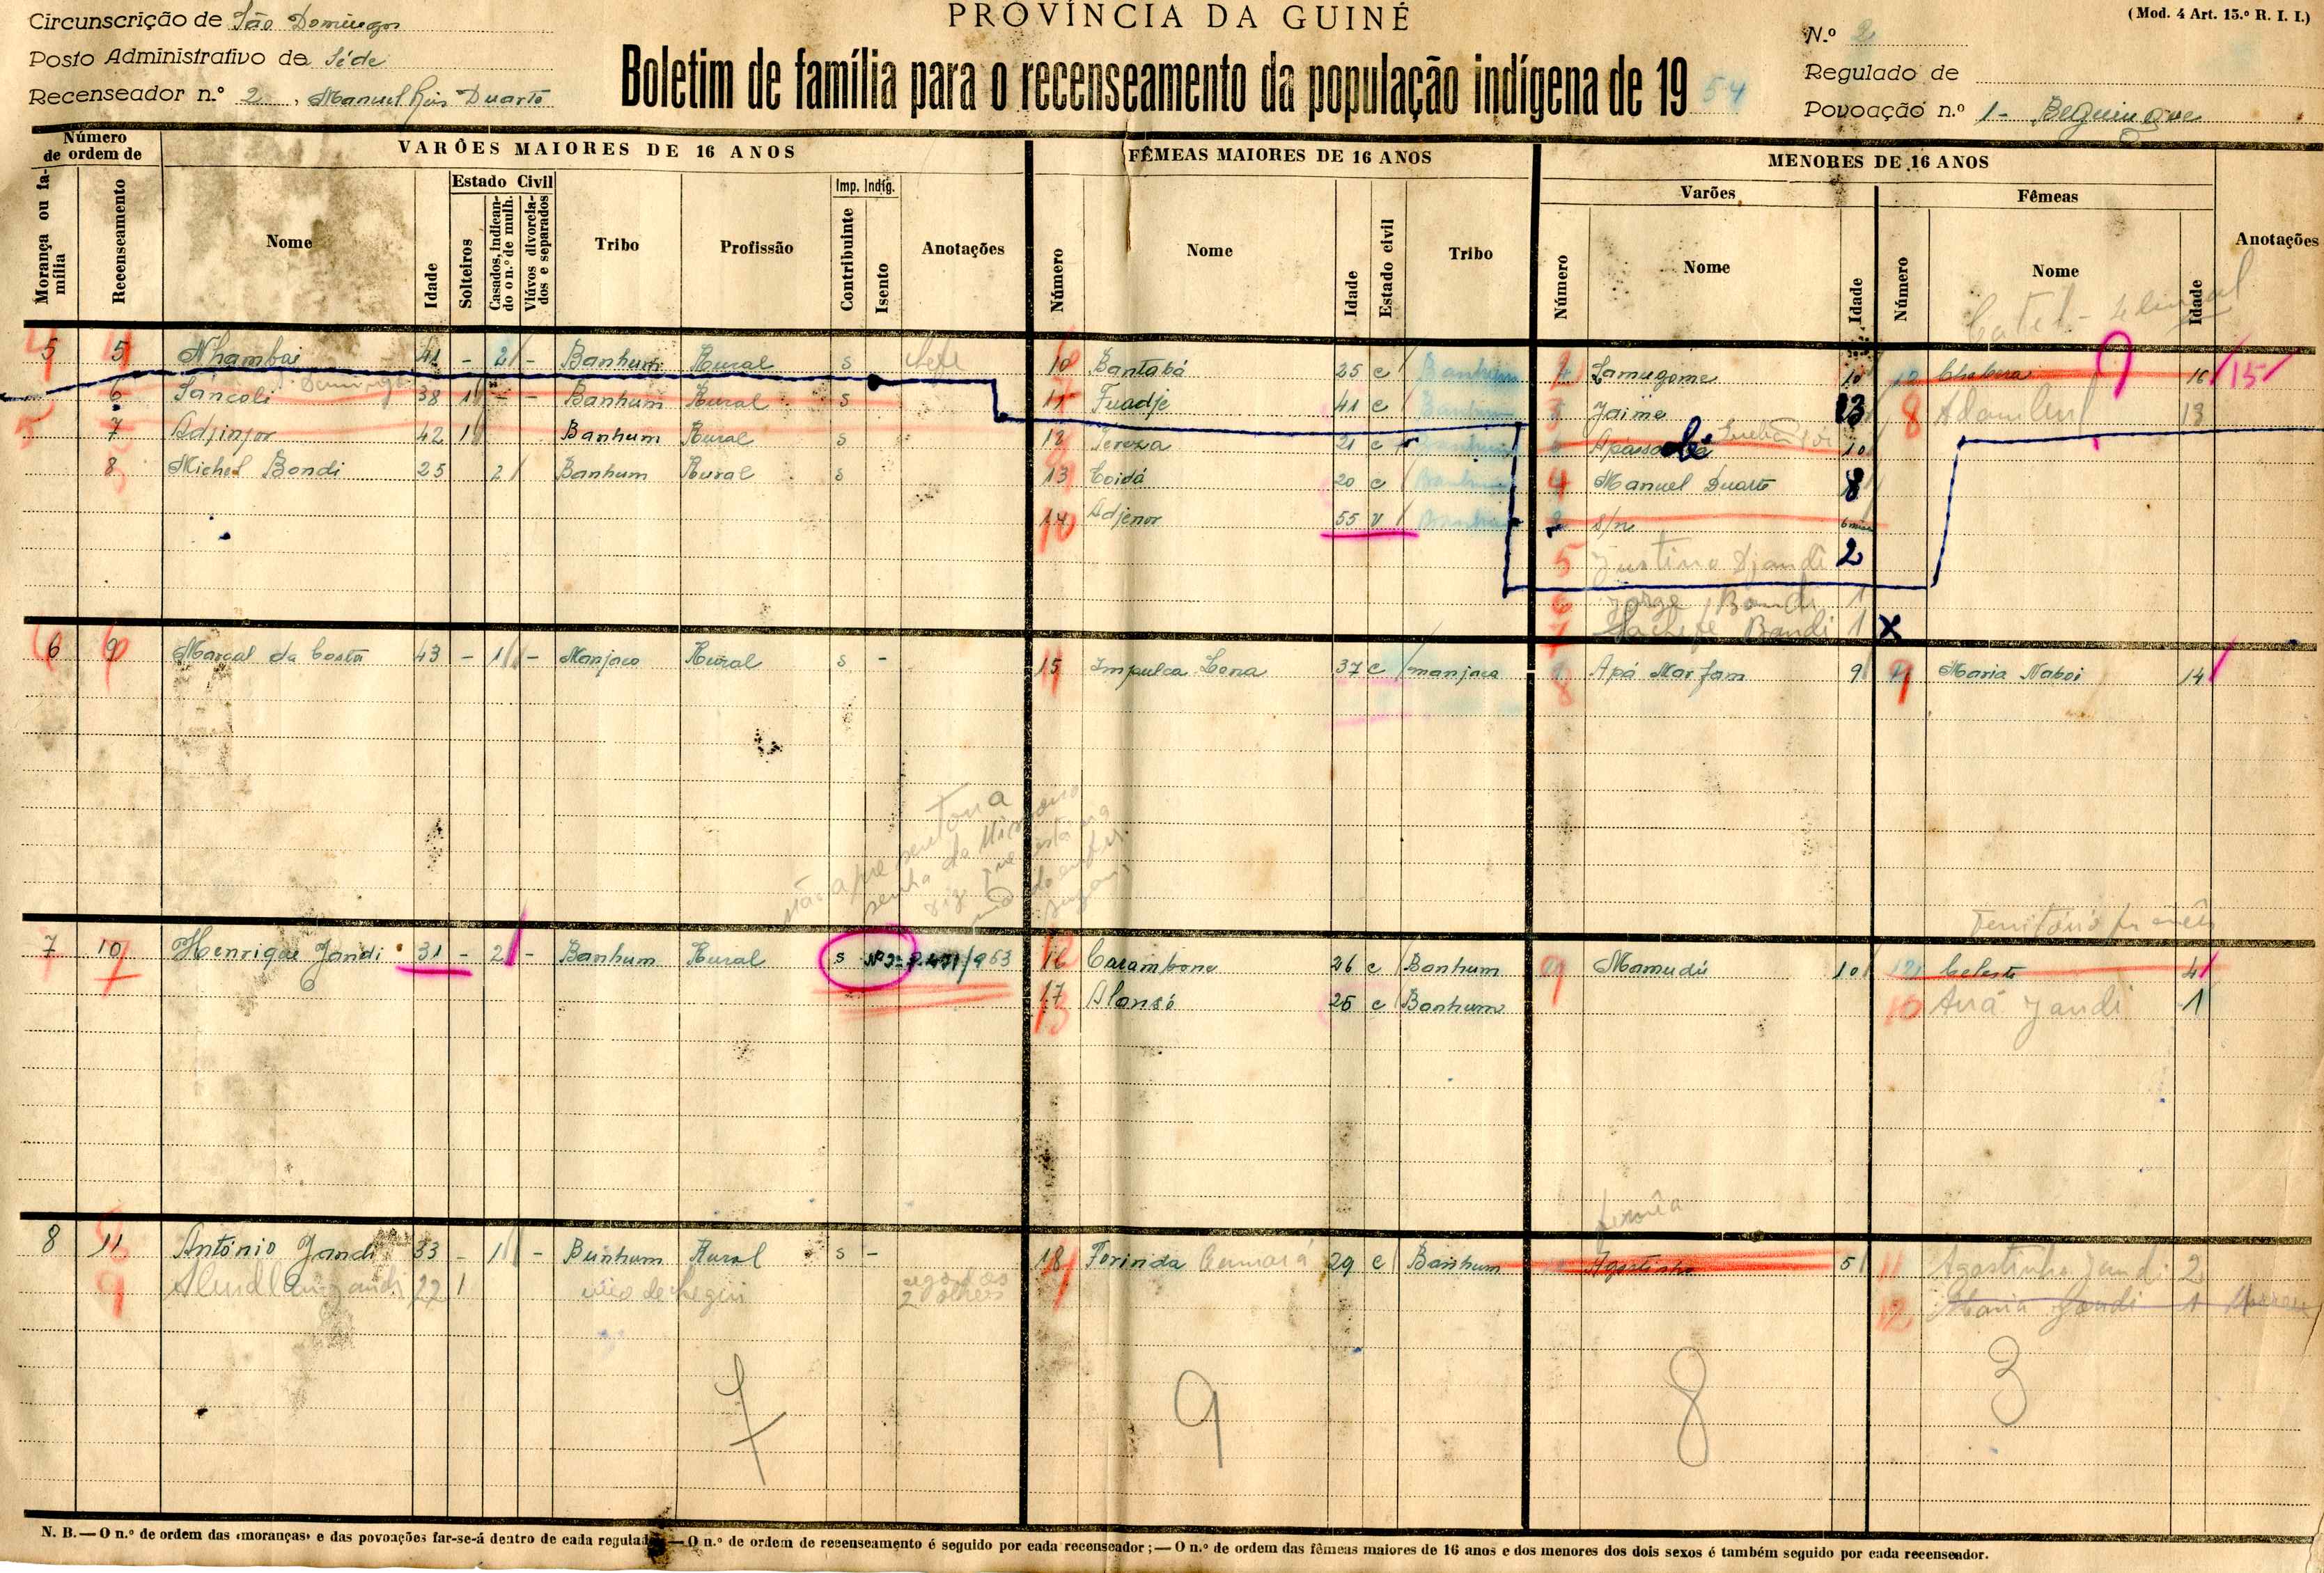 Circunscrição de São Domingos
Posto Administrativo de Séde
Recenseador n.º 2, Manuel Duarte
PROVÍNCIA DA GUINÉ
Boletim de família para o recenseamento da população indígena de 1954
(Mod. 4 Art. 15.º R. I. I.)
N.º 2
Regulado de
Povoação n.º 1- Beguingue
Número de ordem de
Morança ou família
Recenseamento
VARÕES MAIORES DE 16 ANOS
Nome
Idade
Estado Civil
Solteiros
Casados, indicando o n.º de mulh.
Viúvos divorciados e separados
Tribo
Profissão
Imp. Indíg.
Contribuinte
Isento
Anotações
FÊMEAS MAIORES DE 16 ANOS
Número
Nome
Idade
Estado civil
Tribo
MENORES DE 16 ANOS
Varões
Número
Nome
Idade
Fêmeas
Número
Nome
Idade
Anotações
5 5 Nhambai 41 - 2 - Banhum Rural s
10 Bantabá 25 c Banhum
Lamugome 10
16 15
6 Sáncoli 38 1 - - Banhum Rural s
11 Fuadje 41 c Banhum
Jaime 13
8 13
7 Adjinjor 42 1 Banhum Rural s
12 Tereza 21 c Banhum
10
8 Michel Bondi 25 2 Banhum Rural s
13 Coidá 20 c Banhum
4 Manuel Duarte 8
14 Adjenor 55 v Banhum
s/n
5 Justino Djandi 2
6 Jorge Bandi 1
7 Bandi 1 x
6 9 Marçal da Costa 43 - 1 - Manjaco Rural s -
15 Impulca Lona 37 c manjaca
8 Apá Marfam 9
9 Maria Naboi 14
não apresentou a
Território francês
7 10 Henrique Jandi 31 - 2 - Banhum Rural s
16 Carambone 26 c Banhum
9 Mamudú 10
Celeste 4
17 Alansó 25 c Banhum
10 Aná Jandi 1
femêa
8 11 António Jandi 33 - 1 - Banhum Rural s -
18 Forinda Camará 29 c Banhum
Agostinho 5
11 Agostinha Jandi 2
9 Jandi 22 1
cego dos 2 olhos
12 Maria Jandi 1 Morreu
7
9
8
3
N. B. — O n.º de ordem das «moranças» e das povoações far-se-á dentro de cada regulado; — O n.º de ordem de recenseamento é seguido por cada recenseador; — O n.º de ordem das fêmeas maiores de 16 anos e dos menores dos dois sexos é também seguido por cada recenseador.